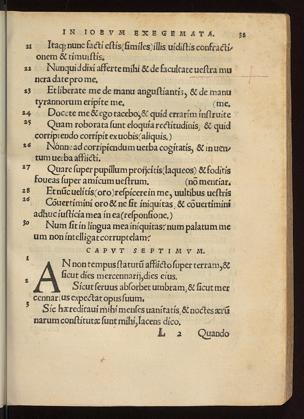 IN IOBVM EXEGEMATA. 38
21 Itaq; nunc facti estis (similes) illis uidistis confracti-
onem & timuistis.
22 Nunquid dixi afferte mihi & de facultate uestra mu
nera date pro me,
23 Et liberate me de manu angustiantis, & de manu
tyrannorum eripite me, (me,
24 Docete me & ego tacebo, & quid errarim instruite
25 Quam roborata sunt eloquia rectitudinis, & quid
corripiendo corripit ex uobis (aliquis.)
26 Nonne ad corripiendum uerba cogitatis, & in uen
tum uerba afflicti.
27 Quare super pupillum projicitis (laqueos) & foditis
foueas super amicum uestrum, (nõ mentiar.
28 Et nũc uelitis (oro) respicere in me, uultibus uestris
29 Cõuertimini oro & ne sit iniquitas, & cõuertimini
adhuc iusticia mea in ea (responsione.)
30 Num sit in lingua mea iniquitas: num palatum me
um non intelligat corruptelam?
CAPVT SEPTIMVM.
1 AN non tempus statutũ afflicto super terram, &
sicut dies mercennarij, dies eius.
2 Sicut seruus absorbet umbram, & sicut mer
cennarius expectat opus suum.
3 Sic hæreditaui mihi menses uanitatis, & noctes ærũ
narum constitutæ sunt mihi, Iacens dico.
L 2 Quando